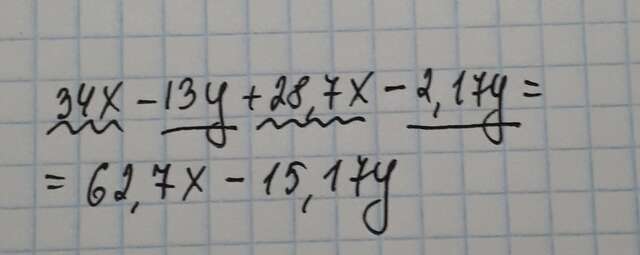 34x - 13y + 28,7x - 2,17y =
= 62,7x - 15,17y